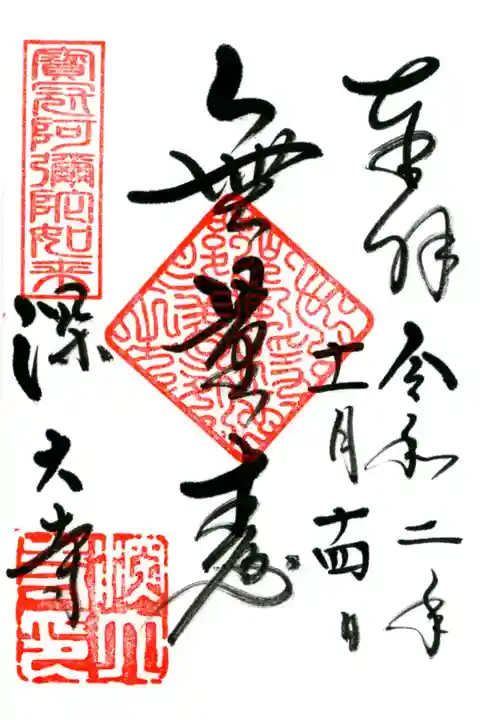 奉拝 令和二年
十一月十四日
無量寿
寶冠阿彌陀如来
深大寺
深大寺印